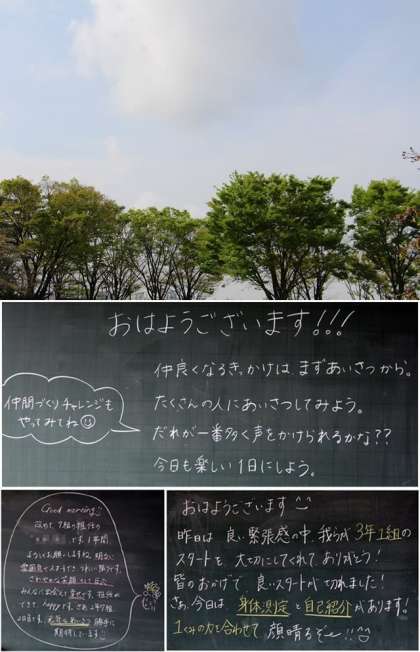 おはようございます!!!
仲良くなるきっかけは まずあいさつから。
仲間づくりチャレンジも
やってみてね
たくさんの人にあいさつしてみよう。
だれが一番多く声をかけられるかな??
今日も楽しい1日にしよう。
Good morning!!
改めて、7組の担任の
です。1年間
よろしくお願いしますね。
みんなに出会えて幸せです。担任が
できて、happyです。さあ、2年7組
2日目です。
期待しています
おはようございます
昨日は 良い緊張感の中、我らが3年1組の
スタートを 大切にしてくれて ありがとう!
皆のおかげで 良いスタートが切れました!
さぁ、今日は、身体測定と自己紹介があります!
1くみの力を合わせて 顔晴るぞー!!